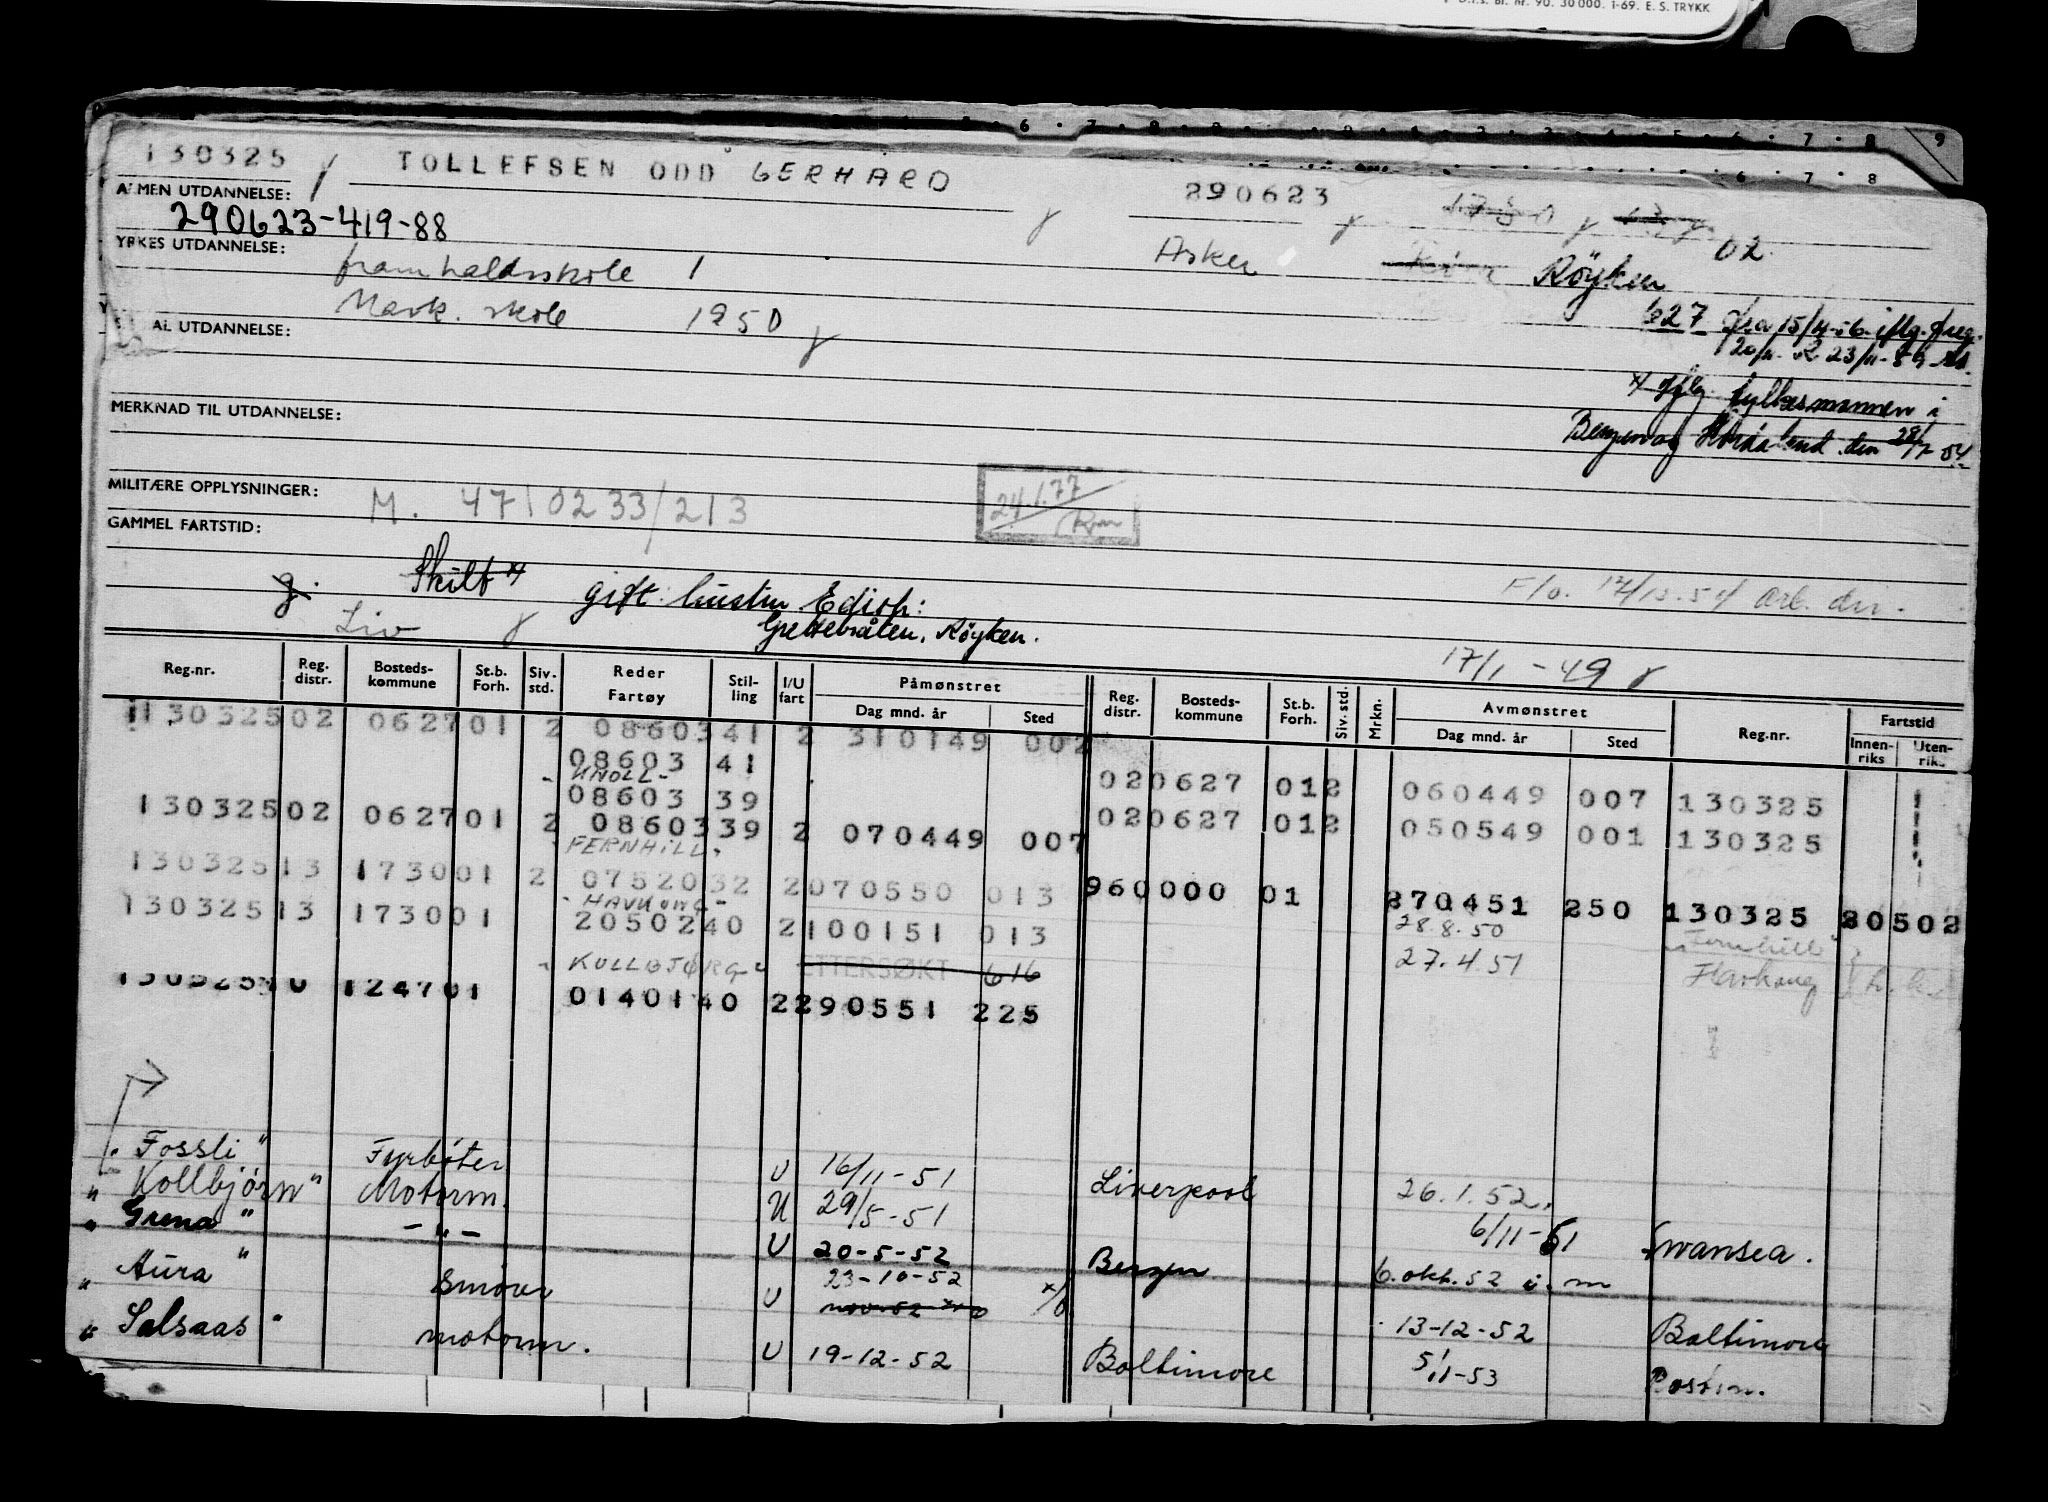 D.t.s. bl. nr. 90. 30 000. 1-69. E. S. TRYKK
130325 TOLLEFSEN ODD GERHARD 290623
ALMEN UTDANNELSE:
290623-419-88 02
YRKES UTDANNELSE: framhaldsskole 1 Asker Røyken
Mask. skole 1950 627 fra 15/4-56 iflg. freg.
AL UTDANNELSE: 20/11 23/11-59
fylkesmannen i
MERKNAD TIL UTDANNELSE: Bergen og Hordaland den 28/7-54
MILITÆRE OPPLYSNINGER: M. 4710233/213 24.1.77
GAMMEL FARTSTID:
Skilt gift: hustru Edith: F/o. 17/12.54 Arb. dir.
Liv Grettebråten, Røyken.
17/1-49
Reg.nr. Reg. distr. Bosteds- kommune St.b. Forh. Siv. std. Reder Fartøy Stil- ling I/U fart Påmønstret Dag mnd. år Sted Reg. distr. Bosteds- kommune St.b. Forh. Siv. std. Mrkn. Avmønstret Dag mnd. år Sted Reg.nr. Fartstid Innen- riks Uten- riks
130325 02 0627 01 2 08603 41 2 310149 002
08603 41
KNOLL 02 0627 01 2 060449 007 130325
08603 39
130325 02 0627 01 2 08603 39 2 070449 007 02 0627 01 2 050549 001 130325
FERNHILL
130325 13 1730 01 2 07520 32 2 070550 013 96 0000 01 270451 250 130325 20502
HAVKONG 28.8.50 Fernhill
130325 13 1730 01 20502 40 2 100151 013
KOLLBJØRG ETTERSØKT 616 27.4.51 Havkong
130325 1247 01 01401 40 2 290551 225
"Fossli" Fyrbøter U 16/11-51 Liverpool 26.1.52.
"Kollbjørn" Motorm. U 29/5-51 6/11-51 Swansea.
"Grena" -"- U 20-5-52 Bergen 6.okt.52
"Aura" Smører U 23-10-52 13-12-52 Baltimore
"Salsaas" motorm. U 19-12-52 Baltimore 5/1-53 Boston.